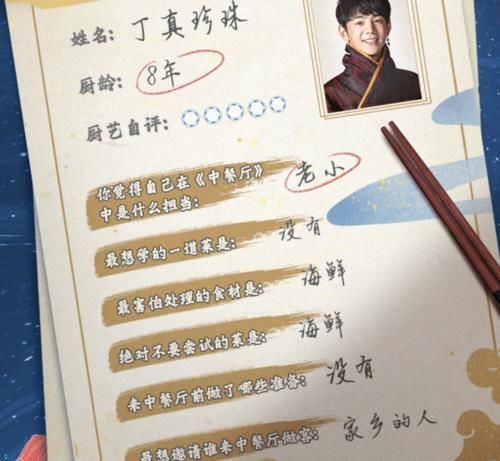 姓名：丁真珍珠
厨龄：8年
厨艺自评：
你觉得自己在《中餐厅》
中是什么担当：老小
最想学的一道菜是：没有
最害怕处理的食材是：海鲜
绝对不要尝试的菜是：海鲜
来中餐厅前做了哪些准备：没有
最想邀请谁来中餐厅做客：家乡的人